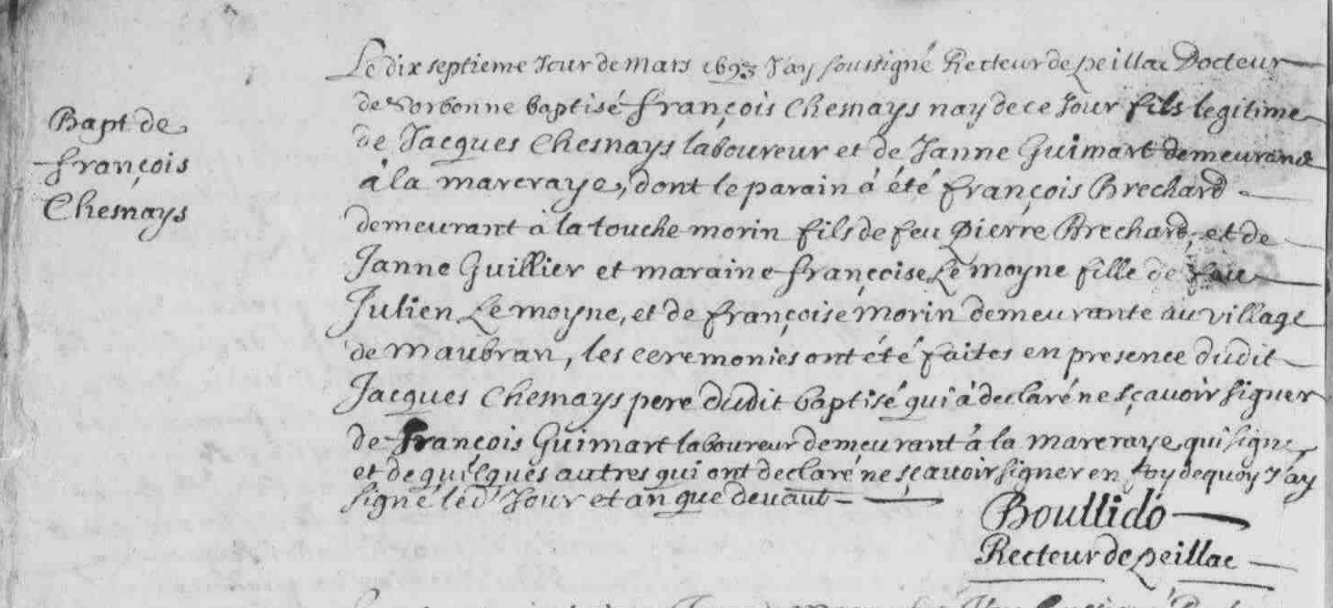 Bapt de
François
Chesnays
Le dix septieme Jour de mars 1693 J'ay soussigné Recteur de peillac Docteur
de Sorbonne baptisé françois Chesnays nay de ce Jour fils legitime
de Jacques Chesnays laboureur et de Janne Guimart demeurans
à la marcraye, dont le parain à été françois Brechard
demeurant à la touche morin fils de feu Pierre Brechard, et de
Janne Guillier et maraine françoise Le moyne fille de feu
Julien Le moyne, et de françoise morin demeurante au village
de maubran, les ceremonies ont été faites en presence dudit
Jacques Chesnays pere dudit baptisé qui à declaré ne sçavoir signer
de François Guimart laboureur demeurant à la marcraye qui signe,
et de quelques autres qui ont declaré ne sçavoir signer en foy dequoy J'ay
signé led Jour et an que devant
Boullido
Recteur de peillac